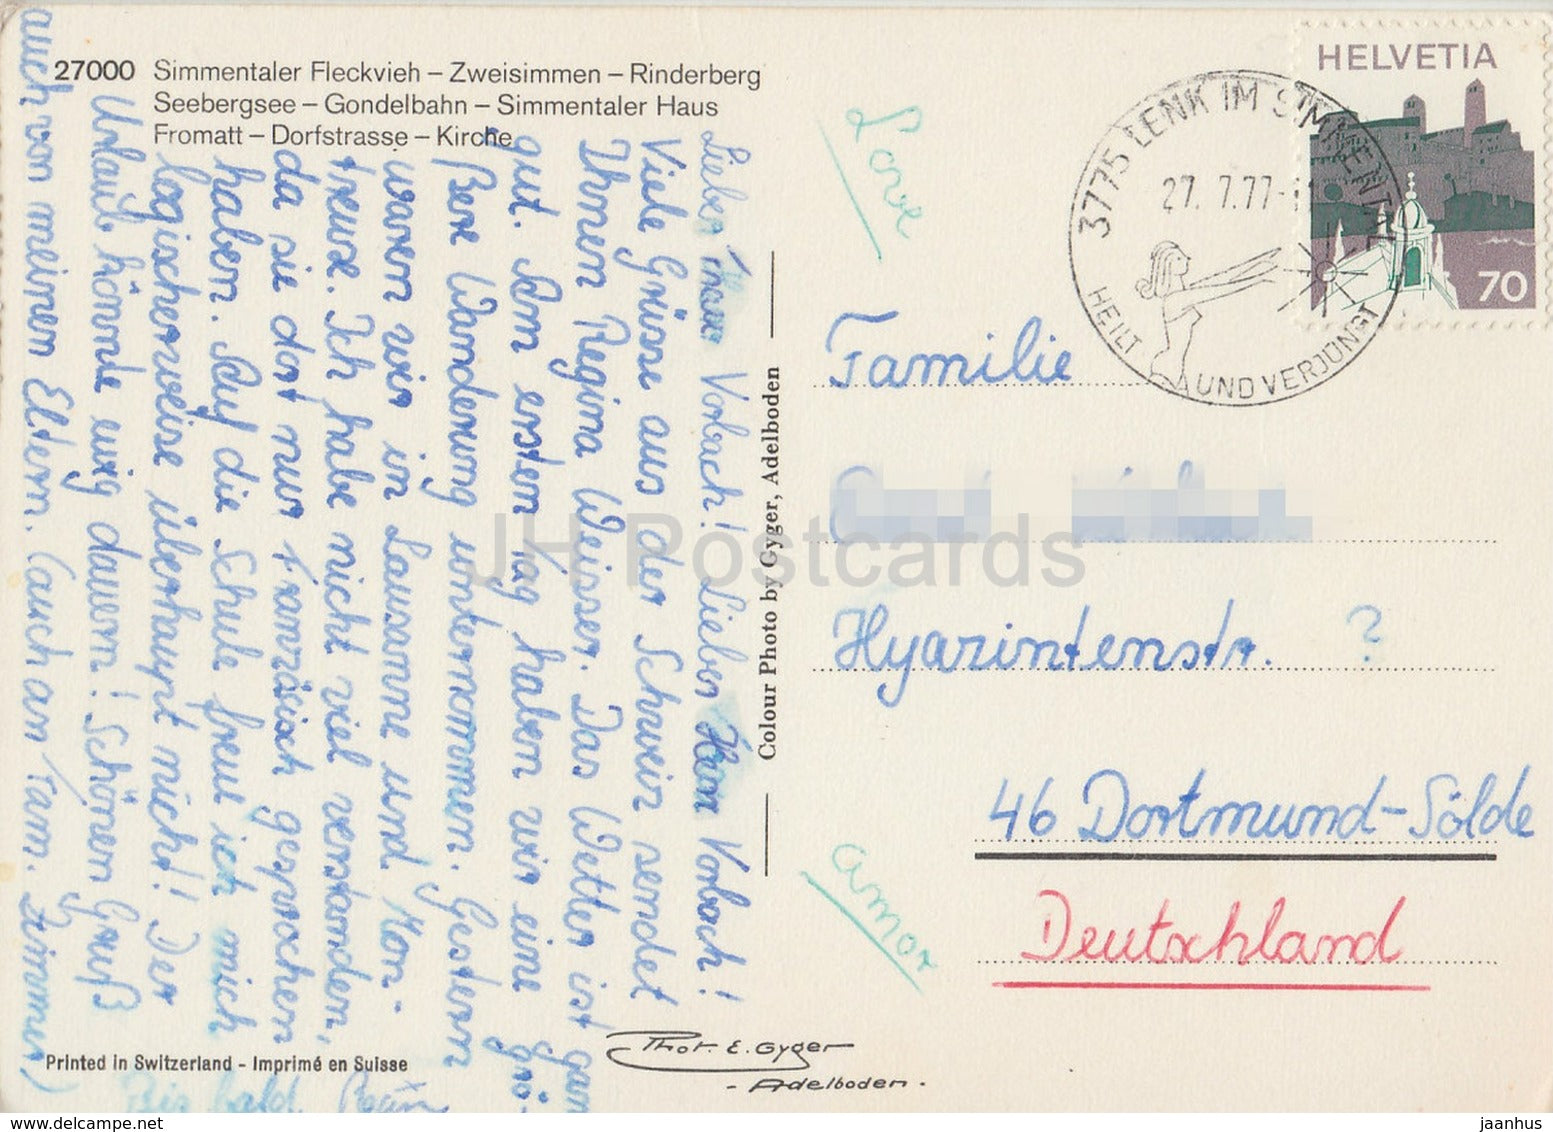 27000 Simmentaler Fleckvieh – Zweisimmen – Rinderberg
Seebergsee – Gondelbahn – Simmentaler Haus
Fromatt – Dorfstrasse – Kirche
Lieber Vorbach! Lieber Herr Vorbach!
Viele Grüsse aus der Schweiz sendet
Ihnen Regina Weisser. Das Wetter ist ganz
gut. Am ersten Tag haben wir eine grö-
ßere Wanderung unternommen. Gestern
waren wir in Lausanne und Mon-
treux. Ich habe nicht viel verstanden,
da sie dort nur französisch gesprochen
haben. Auf die Schule freue ich mich
logischerweise überhaupt nicht! Der
Urlaub könnte ewig dauern! Schönen Gruß
auch von meinen Eltern. (auch an Fam. Zimmer)
Bis bald
Printed in Switzerland - Imprimé en Suisse
Colour Photo by Gyger, Adelboden
Phot. E. Gyger
- Adelboden -
HELVETIA
70
3775 LENK IM SIMMENTAL
27. 7.77-11
HEILT UND VERJÜNGT
Love
Familie
Hyazintenstr. ?
46 Dortmund-Sölde
Deutschland
amor
JH Postcards
delcampe.net
jaanhus